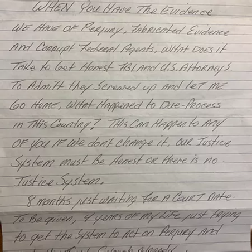 When You Have The Evidence
We Have of Perjury, Fabricated Evidence
And Corrupt Federal Agents, What Does it
Take to Get Honest FBI And U.S. Attorney's
To Admit they Screwed up and let me
Go Home, What Happened to Due-Process
in This Country? This Can Happen to Any
of You if We don't Change it. Our Justice
System Must Be Honest or There is no
Justice System.
8 months just waiting for a Court Date
To Be given, 4 years of my life just trying
to get the System to Act on Perjury And